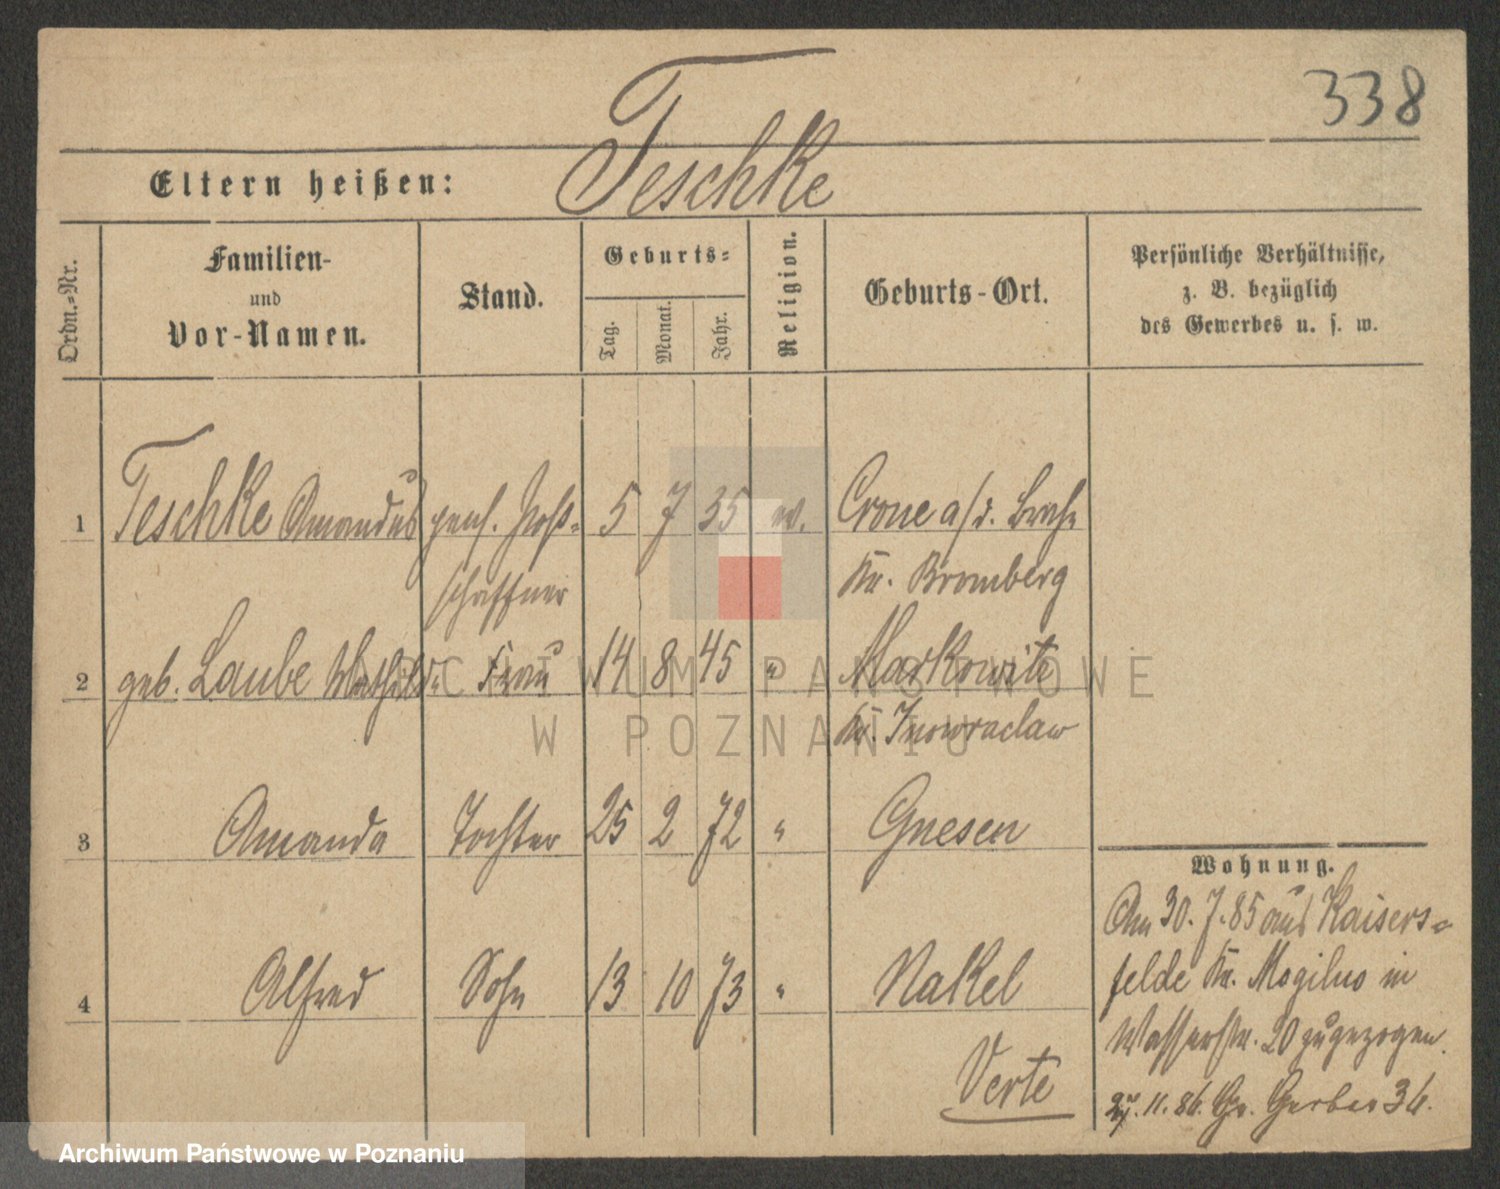 338
Eltern heißen: Teschke
Ordn.-Nr.
Familien-
und
Vor-Namen.
Stand.
Geburts-
Tag.
Monat.
Jahr.
Religion.
Geburts-Ort.
Persönliche Verhältnisse,
z. B. bezüglich
des Gewerbes u. s. w.
1 Teschke Amandus pens. Post- 5 7 35 ev. Crone a/d. Brahe
schaffner Kr. Bromberg
2 geb. Laube Mathilde Frau 14 8 45 " Markowitz
Kr. Inowraclaw
3 Amanda Tochter 25 2 72 " Gnesen
4 Alfred Sohn 13 10 73 " Nakel
Verte
Wohnung.
Am 30. 7. 85 aus Kaisers-
felde Kr. Mogilno in
Wasserstr. 20 zugezogen.
27. 11. 86. Gr. Gerber 36.
ARCHIWUM PAŃSTWOWE
W POZNANIU
Archiwum Państwowe w Poznaniu